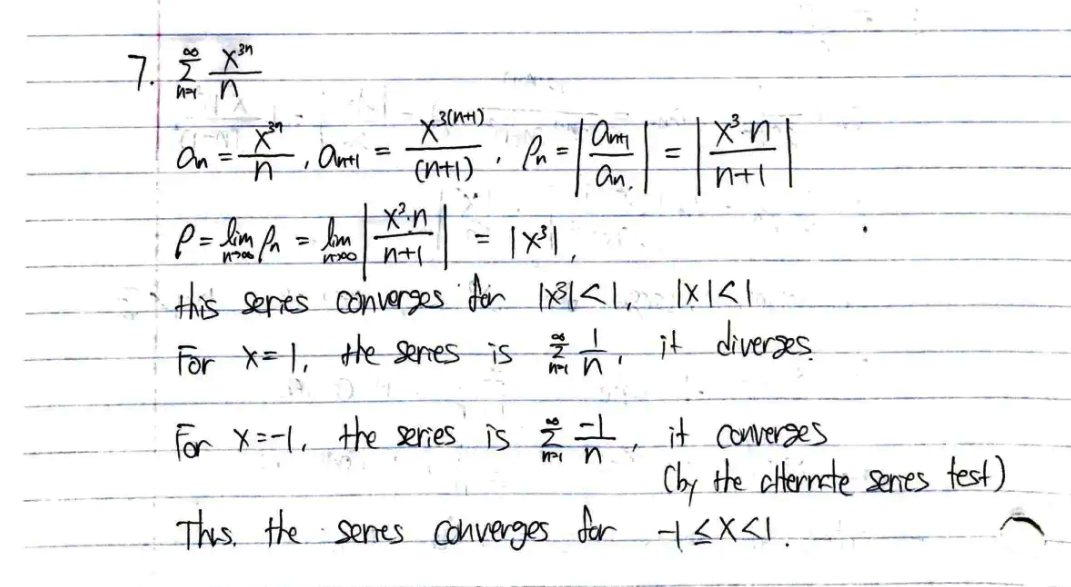 7. ∑_{n=1}^{∞} x^{3n}/n
a_n = x^{3n}/n, a_{n+1} = x^{3(n+1)}/(n+1), ρ_n = |a_{n+1}/a_n| = |x^3·n/(n+1)|
ρ = lim_{n→∞} ρ_n = lim_{n→∞} |x^3·n/(n+1)| = |x^3|,
this series converges for |x^3|<1, |x|<1
For x=1, the series is ∑_{n=1}^{∞} 1/n, it diverges.
For x=-1, the series is ∑_{n=1}^{∞} -1/n, it converges
(by the alternate series test)
Thus, the series converges for -1≤x<1.